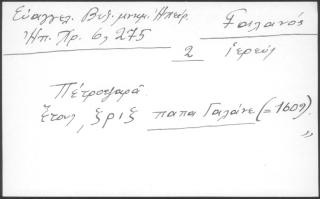 Εὐαγγελ. Βυζ. μνημ. Ἠπείρ. Γαλανός
Ἠπ. Χρ. 6, 275 2 ἱερεύς
Ἔτους, ζριζ παπα Γαλάνε (=1609).